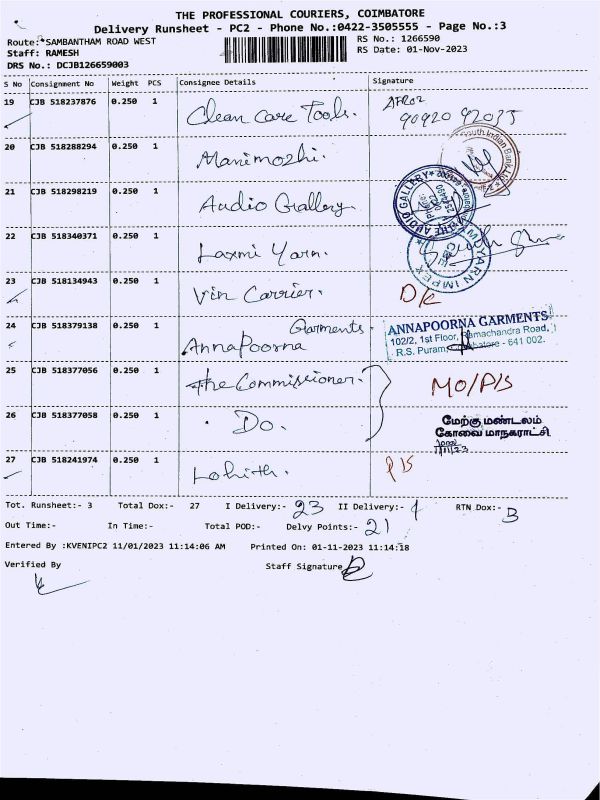 THE PROFESSIONAL COURIERS, COIMBATORE
Delivery Runsheet - PC2 - Phone No.:0422-3505555 - Page No.:3
Route:*SAMBANTHAM ROAD WEST RS No.: 1266590
Staff: RAMESH RS Date: 01-Nov-2023
DRS No.: DCJB126659003
S No Consignment No Weight PCS Consignee Details Signature
19 CJB 518237876 0.250 1 Clean Care Tools.
20 CJB 518288294 0.250 1 Manimozhi.
South Indian Bank Ltd
21 CJB 518298219 0.250 1 Audio Gallery
THE AUDIO GALLERY
22 CJB 518340371 0.250 1 Laxmi Yarn.
YARN IMPEX
23 CJB 518134943 0.250 1 Vin Carrier. DK
24 CJB 518379138 0.250 1 Garments.
AnnaPoorna
ANNAPOORNA GARMENTS
102/2, 1st Floor, Ramachandra Road,
R.S. Puram, Coimbatore - 641 002.
25 CJB 518377056 0.250 1 The Commissioner. MO/P/S
26 CJB 518377058 0.250 1 Do.
மேற்கு மண்டலம்
கோவை மாநகராட்சி
27 CJB 518241974 0.250 1 Lohith. P/S
Tot. Runsheet:- 3 Total Dox:- 27 I Delivery:- 23 II Delivery:- 1 RTN Dox:- 3
Out Time:- In Time:- Total POD:- Delvy Points:- 21
Entered By :KVENIPC2 11/01/2023 11:14:06 AM Printed On: 01-11-2023 11:14:18
Verified By Staff Signature